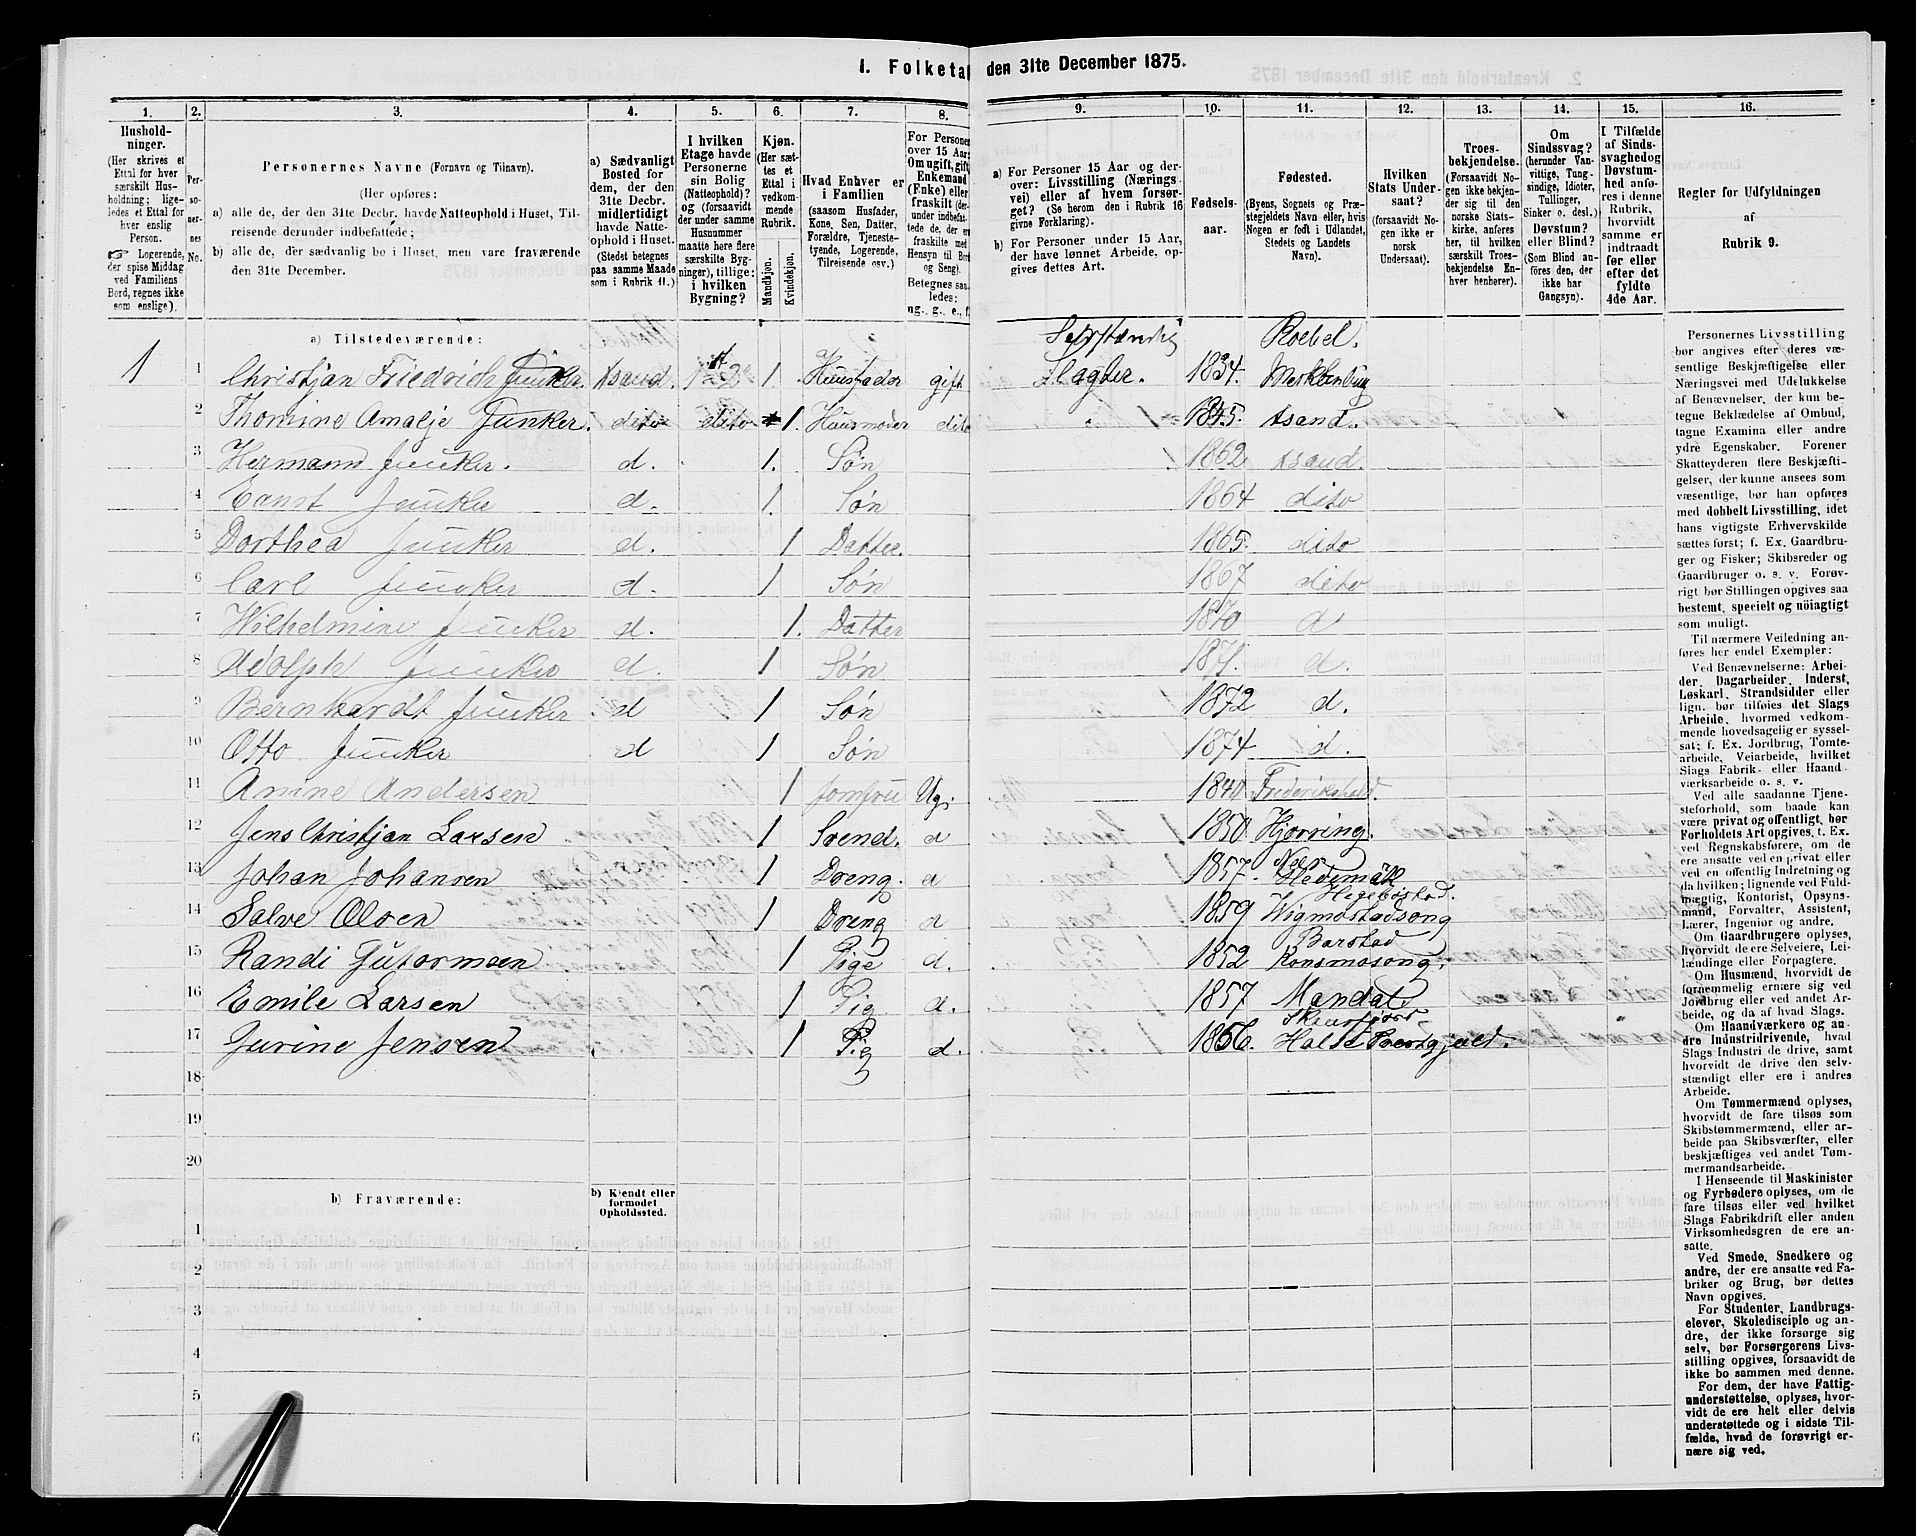 I. Folketal den 31te December 1875.
1. 2. 3. 4. 5. 6. 7. 8. 9. 10. 11. 12. 13. 14. 15. 16.
Hushold-
ninger.
(Her skrives et
Ettal for hver
særskilt Hus-
holdning; lige-
ledes et Ettal for
hver enslig
Person.
Logerende,
der spise Middag
ved Familiens
Bord, regnes ikke
som enslige).
Per-
so-
ner-
nes
No.
Personernes Navne (Fornavn og Tilnavn).
(Her opføres:
a) alle de, der den 31te Decbr. havde Natteophold i Huset, Til-
reisende derunder indbefattede;
b) alle de, der sædvanlig bo i Huset, men vare fraværende
den 31te December.
a) Sædvanligt
Bosted for
dem, der den
31te Decbr.
midlertidigt
havde Natte-
ophold i Huset.
(Stedet betegnes
paa samme Maade
som i Rubrik 11.)
I hvilken
Etage havde
Personerne
sin Bolig
(Natteophold)?
og (forsaavidt
der under samme
Husnummer
maatte høre flere
særskilte Byg-
ninger), tillige:
i hvilken
Bygning?
Kjøn.
(Her sæt-
tes et
Ettal i
vedkom-
mende
Rubrik.
Mandkjøn.
Kvindekjøn.
Hvad Enhver er
i Familien
(saasom Husfader,
Kone, Søn, Datter,
Forældre, Tjeneste-
tyende, Logerende,
Tilreisende osv.)
For Personer
over 15 Aar:
Om ugift, gift,
Enkemand
(Enke) eller
fraskilt (der-
under indbefat-
tede de, der ere
fraskilte med
Hensyn til Bord
og Seng).
Betegnes saa-
ledes:
ug., g., e., f.
a) For Personer 15 Aar og der-
over: Livsstilling (Nærings-
vei) eller af hvem forsør-
get? (Se herom den i Rubrik 16
givne Forklaring).
b) For Personer under 15 Aar,
der have lønnet Arbeide, op-
gives dettes Art.
Fødsels-
aar.
Fødested.
(Byens, Sognets og Præ-
stegjeldets Navn eller, hvis
Nogen er født i Udlandet,
Stedets og Landets
Navn).
Hvilken
Stats Under-
saat?
(forsaavidt No-
gen ikke er
norsk
Undersaat).
Troes-
bekjendelse.
(Forsaavidt No-
gen ikke bekjen-
der sig til den
norske Stats-
kirke, anføres
her, til hvilken
særskilt Troes-
bekjendelse En-
hver henhører).
Om
Sindssvag?
(herunder Van-
vittige, Tung-
sindige, Idioter,
Tullinger,
Sinker o. desl.)
Døvstum?
eller Blind?
(Som Blind an-
føres den, der
ikke har
Gangsyn).
I Tilfælde
af Sinds-
svaghed og
Døvstum-
hed anfø-
res i denne
Rubrik,
hvorvidt
samme er
indtraadt
før eller
efter det
fyldte
4de Aar.
Regler for Udfyldningen
af
Rubrik 9.
a) Tilstedeværende:
Selvstændig Roebel.
1 1 Christjan Friedrich Junker. 1. Huusfader gift Slagter. 1834. Meklenburg
2 Thomine Amalje Junker. dito dito 1. Huusmoder dito 1845.
3 Hermann Junker. d. 1. Søn 1862
4 Ernst Junker d. 1. Søn 1864 dito
5 Dorthea Junker d. 1 Datter. 1865. dito
6 Carl Junker d. 1 Søn 1867 dito
7 Wilhelmine Junker d. 1. Datter 1870 d
8 Adolph Junker d. 1 Søn 1871. d.
9 Bernhardt Junker. d 1 Søn 1872 d.
10 Otto Junker d 1 Søn 1874 d.
11 Anine Andersen 1 Jomfru Ug. 1840 Frederikshald.
12 Jens Christjan Larsen 1 Svend. d 1850. Hjørring.
13 Johan Johansen 1 Dreng. d 1857. Hedemark
Hegebostad.
14 Salve Olsen 1 Dreng d 1859 Wigmostadsong
Barstad
15 Randi Gutormsen 1 Pige d. 1852 Konsmosong.
16 Emile Larsen 1 Pig d. 1857 Mandal
17 Jurine Jensen 1 Pig d. 1856. Halse Prestgjeld.
18
19
20
b) Fraværende:
b) Kjendt eller
formodet
Opholdssted.
1
2
3
4
5
6
Personernes Livsstilling
bør angives efter deres væ-
sentlige Beskjæftigelse eller
Næringsvei med Udelukkelse
af Benævnelser, der kun be-
tegne Beklædelse af Ombud,
tagne Examina eller andre
ydre Egenskaber. Forener
Skatteyderen flere Beskjæfti-
gelser, der kunne ansees som
væsentlige, bør han opføres
med dobbelt Livsstilling, idet
hans vigtigste Erhvervskilde
sættes først; f. Ex. Gaardbru-
ger og Fisker; Skibsreder og
Gaardbruger o. s. v. Forøv-
rigt bør Stillingen opgives saa
bestemt, specielt og nöiagtigt
som muligt.
Til nærmere Veiledning an-
føres her endel Exempler:
Ved Benævnelserne: Arbei-
der, Dagarbeider, Inderst,
Løskarl, Strandsidder eller
lign. bør tilføies det Slags
Arbeide, hvormed vedkom-
mende hovedsagelig er syssel-
sat; f. Ex. Jordbrug, Tomte-
arbeide, Veiarbeide, hvilket
Slags Fabrik- eller Haand-
værksarbeide o. s. v.
Ved alle saadanne Tjene-
steforhold, som baade kan
være privat og offentligt, bør
Forholdets Art opgives, f. Ex.
ved Regnskabsførere, om de
ere ansatte ved en privat eller
ved en offentlig Indretning og
da hvilken; lignende ved Fuld-
mægtig, Kontorist, Opsyns-
mand, Forvalter, Assistent,
Lærer, Ingeniør og andre.
Om Gaardbrugere oplyses,
hvorvidt de ere Selveiere, Lei-
lændinge eller Forpagtere.
Om Husmænd, hvorvidt de
fornemmelig ernære sig ved
Jordbrug eller ved andet Ar-
beide, og da af hvad Slags.
Om Haandværkere og an-
dre Industridrivende, hvad
Slags Industri de drive, samt
hvorvidt de drive den selv-
stændigt eller ere i andres
Arbeide.
Om Tømmermænd oplyses,
hvorvidt de fare tilsøs som
Skibstømmermænd, eller ar-
beide paa Skibsværfter, eller
beskjæftiges ved andet Tøm-
mermandsarbeide.
I Henseende til Maskinister
og Fyrbødere oplyses, om de
fare tilsøs eller ved hvilket
Slags Fabrikdrift eller anden
Virksomhedsgren de ere an-
satte.
Ved Smede, Snedkere og
andre, der ere ansatte ved Fa-
briker og Brug, bør dettes
Navn opgives.
For Studenter, Landbrugs-
elever, Skoledisciple og an-
dre, der ikke forsørge sig
selv, bør Forsørgerens Livs-
stilling opgives, forsaavidt de
ikke bo sammen med denne.
For dem, der have Fattig-
understøttelse, oplyses, hvor-
vidt de ere helt eller delvis
understøttede og i sidste Til-
fælde, hvad de forøvrigt er-
nære sig ved.